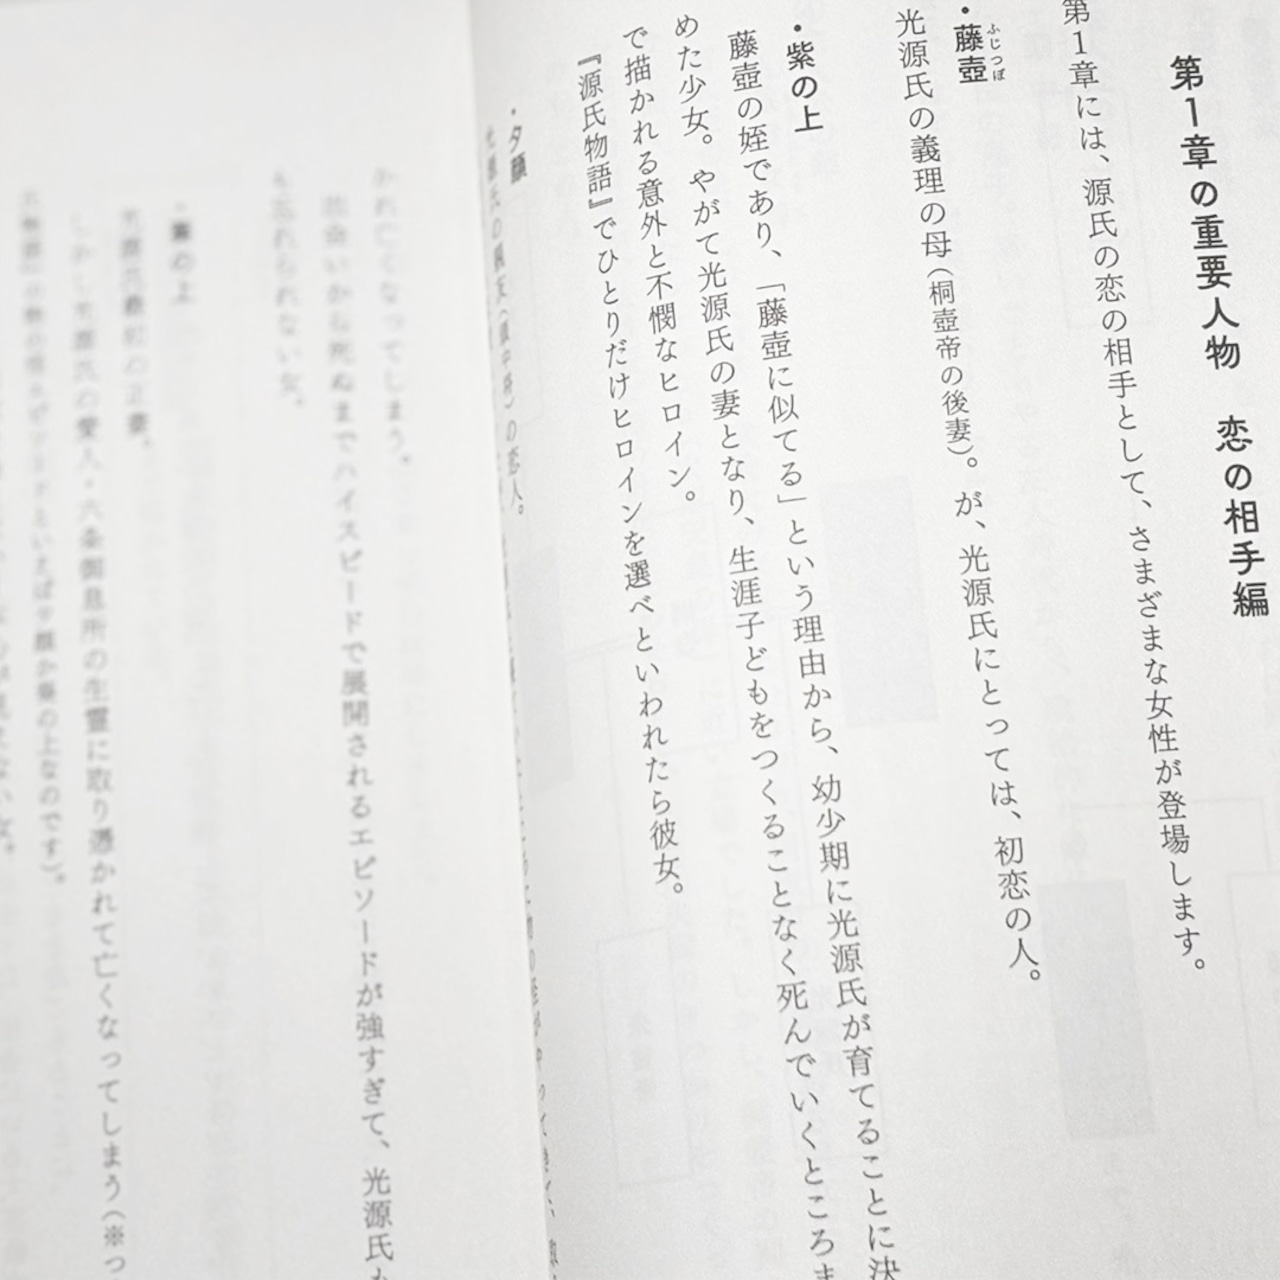 第1章の重要人物　恋の相手編
第1章には、源氏の恋の相手として、さまざまな女性が登場します。
・藤壺
ふじつぼ
光源氏の義理の母（桐壺帝の後妻）。が、光源氏にとっては、初恋の人。
・紫の上
藤壺の姪であり、「藤壺に似てる」という理由から、幼少期に光源氏が育てることに決
めた少女。やがて光源氏の妻となり、生涯子どもをつくることなく死んでいくところま
で描かれる意外と不憫なヒロイン。
『源氏物語』でひとりだけヒロインを選べといわれたら彼女。
・夕顔
の恋人。
亡くなってしまう。
死ぬまでハイスピードで展開されるエピソードが強すぎて、光源氏も
忘れられない女。
の上
光源氏最初の正妻。
光源氏の愛人・六条御息所の生霊に取り憑かれて亡くなってしまう（※つ
といえば夕顔か葵の上なのです）。